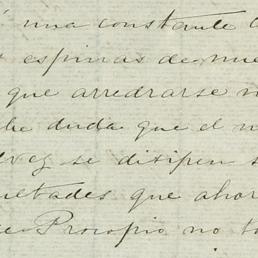 una constante
espinas de
que arredrarse
duda que el
vez se disipen
ultades que ahor
Procopio no